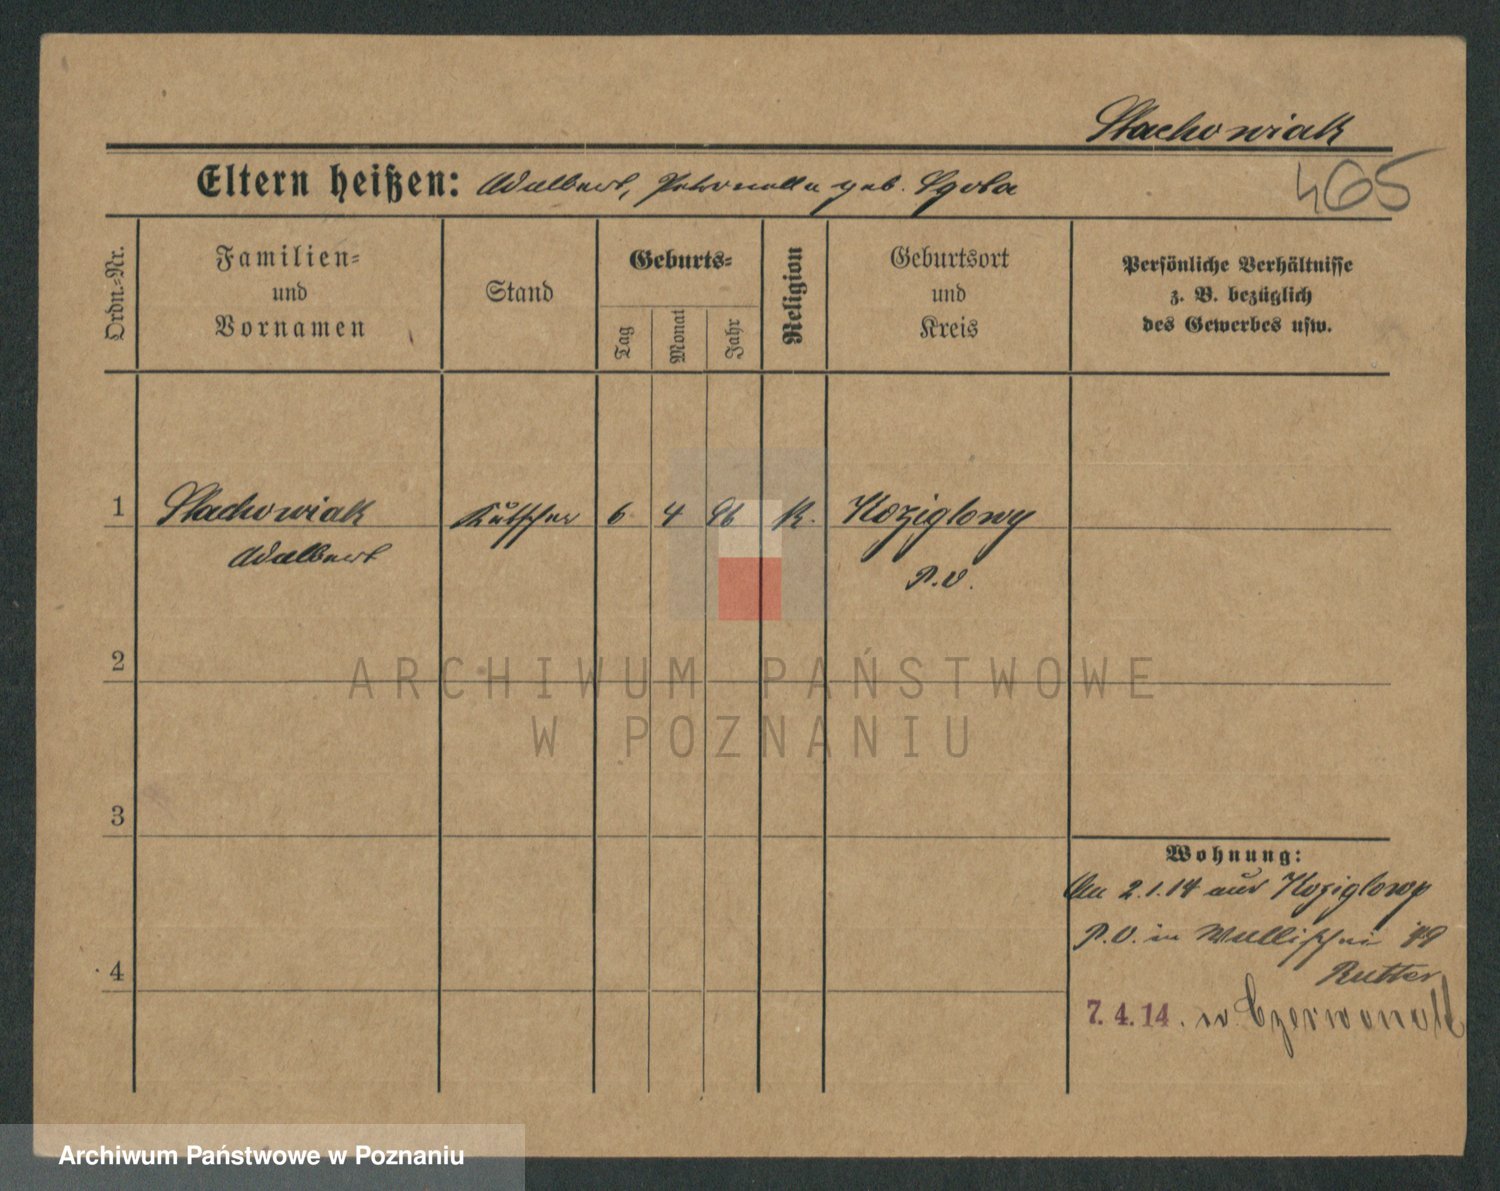 Stachowiak
465
Eltern heißen: Adalbert, Petronella geb. Cgola
Ordn.-Nr.
Familien-
und
Vornamen
Stand
Geburts-
Tag
Monat
Jahr
Religion
Geburtsort
und
Kreis
Persönliche Verhältnisse
z. B. bezüglich
des Gewerbes usw.
1 Stachowiak Kutscher 6. 4 96 K. Koziglowy
Adalbert P.O.
2
ARCHIWUM PAŃSTWOWE
W POZNANIU
3
Wohnung:
An 2.1.14 aus Koziglowy
P.O. in Wallischei 49
Rutter
4
7. 4. 14. n. Czerwonak
Archiwum Państwowe w Poznaniu